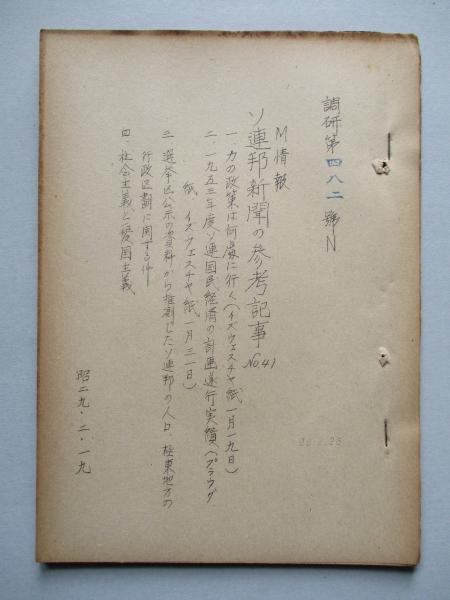 調研第四八二號N
M情報
ソ連邦新聞の参考記事 No.41
一、力の政策は何處に行く(イズウェスチヤ紙一月一九日)
二、一九五三年度ソ連国民経済の計画遂行実績(プラウダ
紙 イズウェスチヤ紙一月三一日)
三、選挙区公示の資料から推測したソ連邦の人口、極東地方の
行政区劃に関する件
四、社会主義と愛国主義
昭二九・二・一九